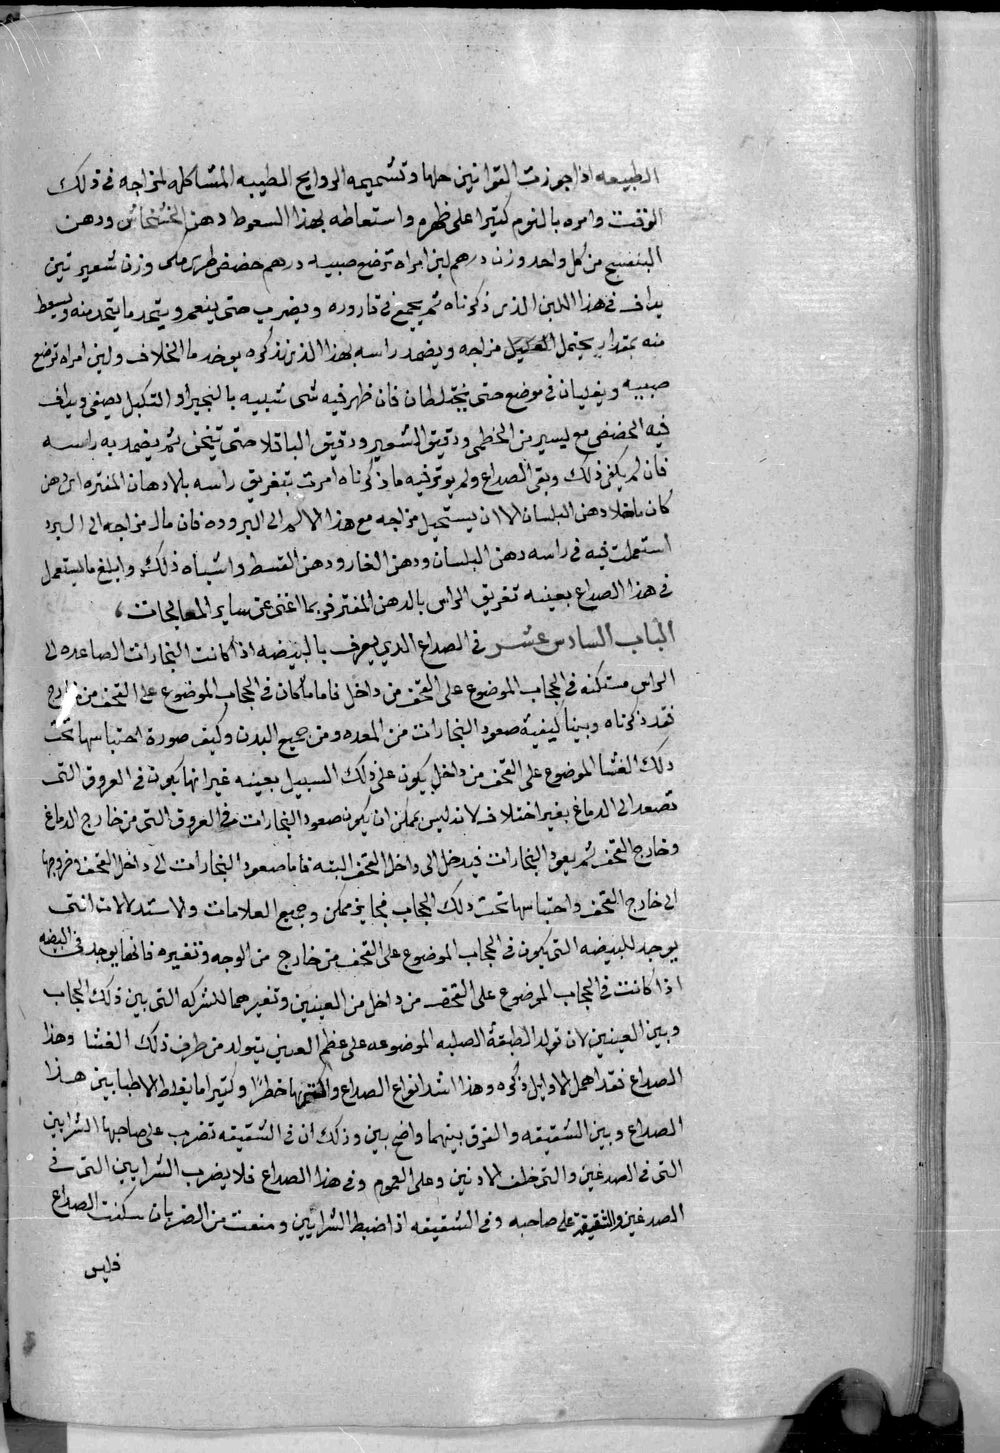 الطبيعه اذا جوزت القوانين حلها وتشميمه الروايح الطيبه المشاكله لمزاجه فى ذلك
الوقت وامره بالنوم كثيرا على ظهره واستعاطه بهذا السعوط دهن الخشخاش ودهن
البنفسج من كل واحد وزن درهم لبن امراه ترضع صبيه درهم حضض وزن شعيرتين
يداف فى هذا اللبن الذى ذكرناه ثم يجمع فى قاروره ويضرب حتى ينعم ويتحد ما يتحد منه ويسعط
منه بمقدار يحتمل العليل مزاجه ويضمد راسه بهذا الذى نذكره يوخد ما الخلاف ولبن امراه ترضع
صبيه ويغليان فى موضع حتى يختلطان فان ظهر فيه شى شبيه بالتجير او التكبل يصفى ويداف
فيه الحضض مع يسير من الخطمى ودقيق الشعير ودقيق الباقلا حتى يثخن ثم يضمد به راسه
فان لم يكفى ذلك وبقى الصداع ولم يوثر فيه ما ذكرناه امرت بتغريق راسه بالادهان المفتره اى دهن
كان ما خلا دهن البلسان الا ان يستحيل مزاجه مع هذا الالم الى البروده فان مال مزاجه الى البرد
استعملت فيه فى راسه دهن البلسان ودهن الغار ودهن القسط واشباه ذلك وابلغ ما يستعمل
فى هذا الصداع بعينه تغريق الراس بالدهن المفتر فربما اغنى عن ساير المعالجات
الباب السادس عشر فى الصداع الذي يعرف بالبيضه اذا كانت البخارات الصاعده الى
الراس مستكنه فى الحجاب الموضوع على القحف من داخل فاما ما كان فى الحجاب الموضوع على القحف من خارج
فقد ذكرناه وبينا كيفية صعود البخارات من المعده ومن جميع البدن وكيف صورة احتباسها تحت
ذلك الغشا الموضوع على القحف من داخل يكون على ذلك السبيل بعينه غير انها يكون فى العروق التى
تصعد الى الدماغ بغير اختلاف لانه ليس يمكن ان يكون صعود البخارات فى العروق التى من خارج الدماغ
وخارج القحف ثم يعود البخارات فيدخل الى داخل القحف البته فاما صعود البخارات الى داخل القحف وخروجها
الى خارج القحف واحتباسها تحت ذلك الحجاب ممكن وجميع العلامات والاستدلالات التى
يوجد للبيضه التى يكون فى الحجاب الموضوع على القحف من خارج من الوجه وتغيره فانها يوجد فى البيضه
اذا كانت فى الحجاب الموضوع على القحف من داخل من العينين وتغيرهما للشركه التى بين ذلك الحجاب
وبين العينين لان تولد الطبقة الصلبه الموضوعه على عظم العين يتولد من طرف ذلك الغشا وهذا
الصداع فقد اهمل الاوايل ذكره وهذا اشد انواع الصداع واكثرها خطرا وكثيرا ما يغلط الاطبا بين هذا
الصداع وبين الشقيقه والفرق بينهما واضح بين وذلك ان فى الشقيقه تضرب على صاحبها الشرايين
التى فى الصدغين والتى خلف الاذنين وعلى العموم وفى هذا الصداع فلا يضرب الشرايين التى فى
الصدغين على صاحبه وفى الشقيقه اذا ضبط الشرايين ومنعت من الضربان سكنت الصداع
فليس